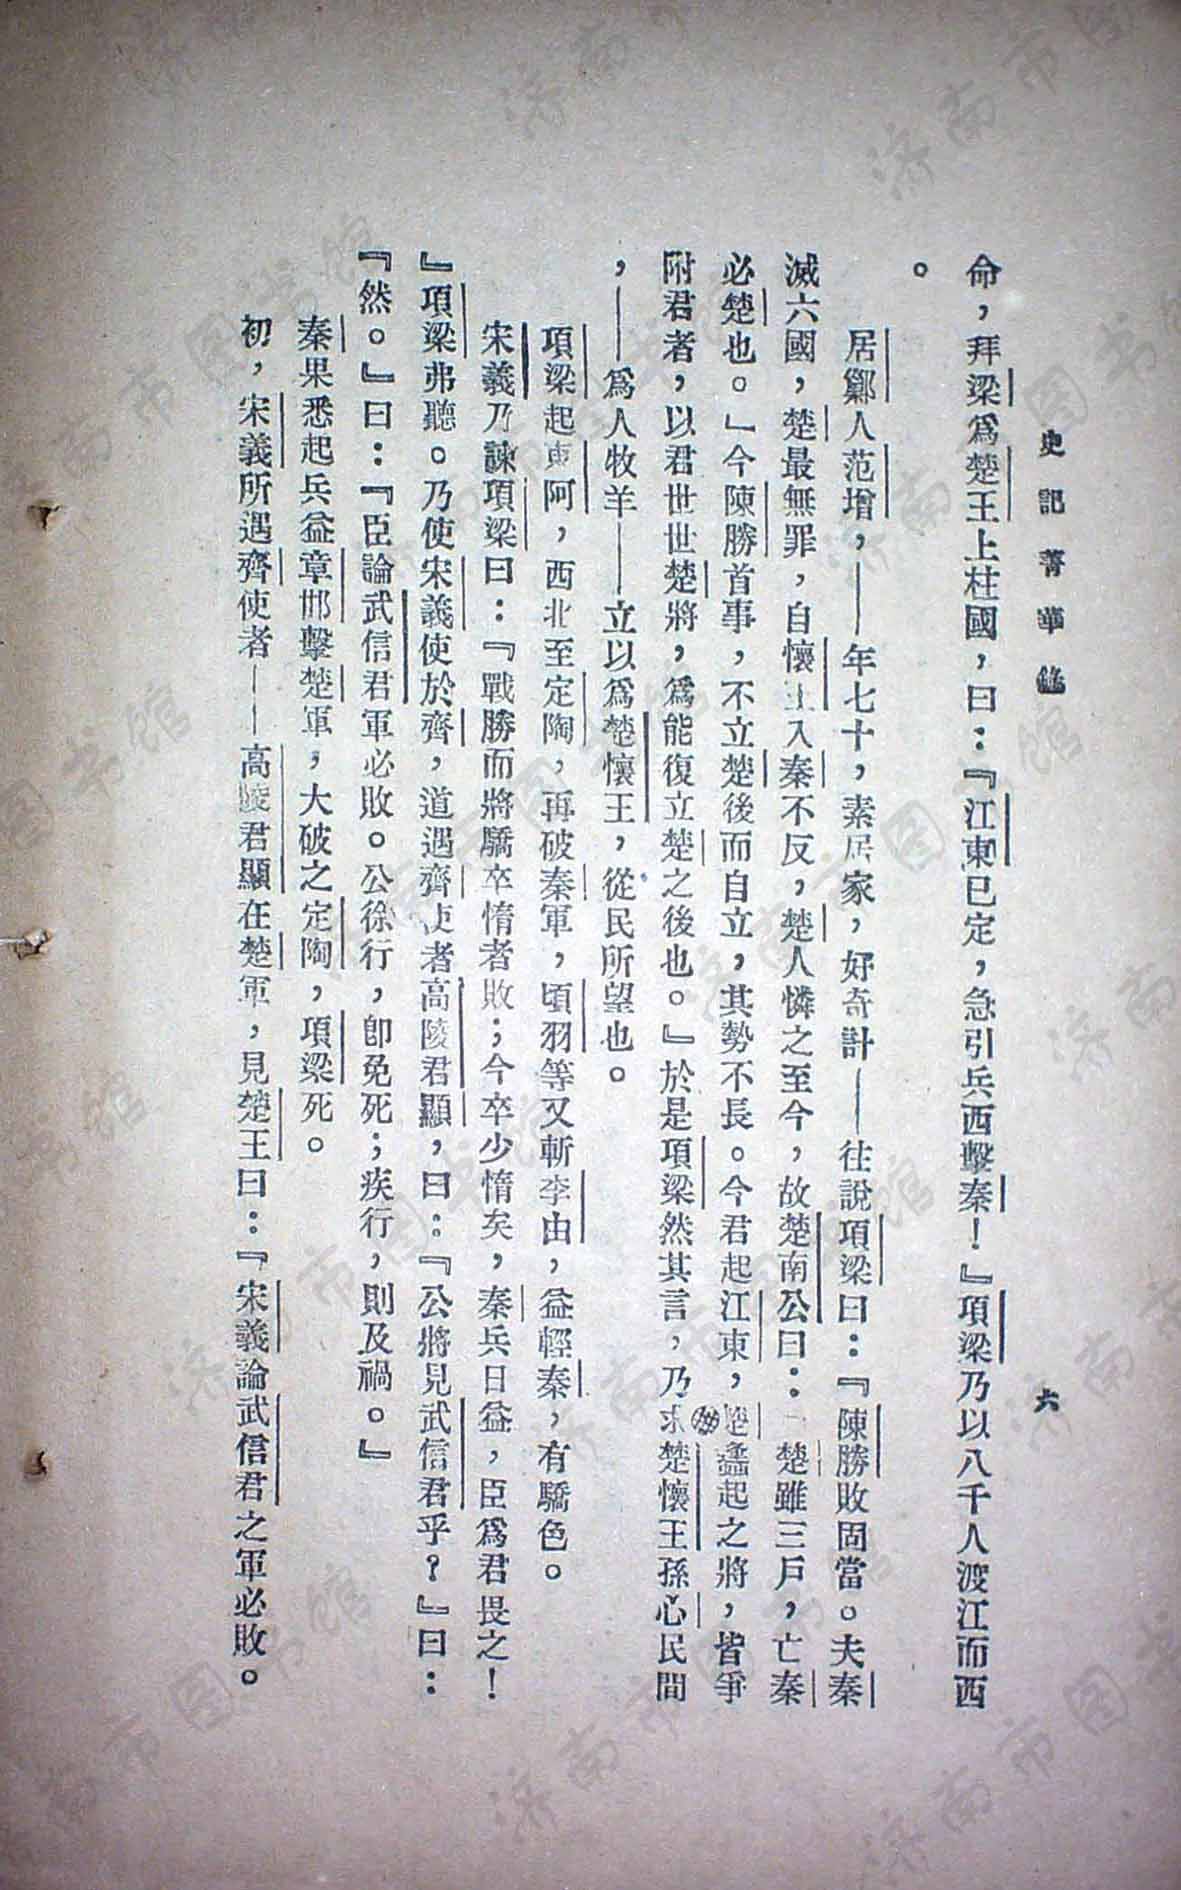 史記菁華錄
六
命，拜梁爲楚王上柱國，曰：『江東已定，急引兵西擊秦！』項梁乃以八千人渡江而西
。
居鄛人范增，——年七十，素居家，好奇計——往說項梁曰：『陳勝敗固當。夫秦
滅六國，楚最無罪，自懷王入秦不反，楚人憐之至今，故楚南公曰：「楚雖三戶，亡秦
必楚也。」今陳勝首事，不立楚後而自立，其勢不長。今君起江東，楚蠭起之將，皆爭
附君者，以君世世楚將，爲能復立楚之後也。』於是項梁然其言，乃求楚懷王孫心民間
，——爲人牧羊——立以爲楚懷王，從民所望也。
項梁起東阿，西北至定陶，再破秦軍，項羽等又斬李由，益輕秦，有驕色。
宋義乃諫項梁曰：『戰勝而將驕卒惰者敗；今卒少惰矣，秦兵日益，臣爲君畏之！
』項梁弗聽。乃使宋義使於齊，道遇齊使者高陵君顯，曰：『公將見武信君乎？』曰：
『然。』曰：『臣論武信君軍必敗。公徐行，卽免死；疾行，則及禍。』
秦果悉起兵益章邯擊楚軍，大破之定陶，項梁死。
初，宋義所遇齊使者——高陵君顯在楚軍，見楚王曰：『宋義論武信君之軍必敗。
济南市图书馆